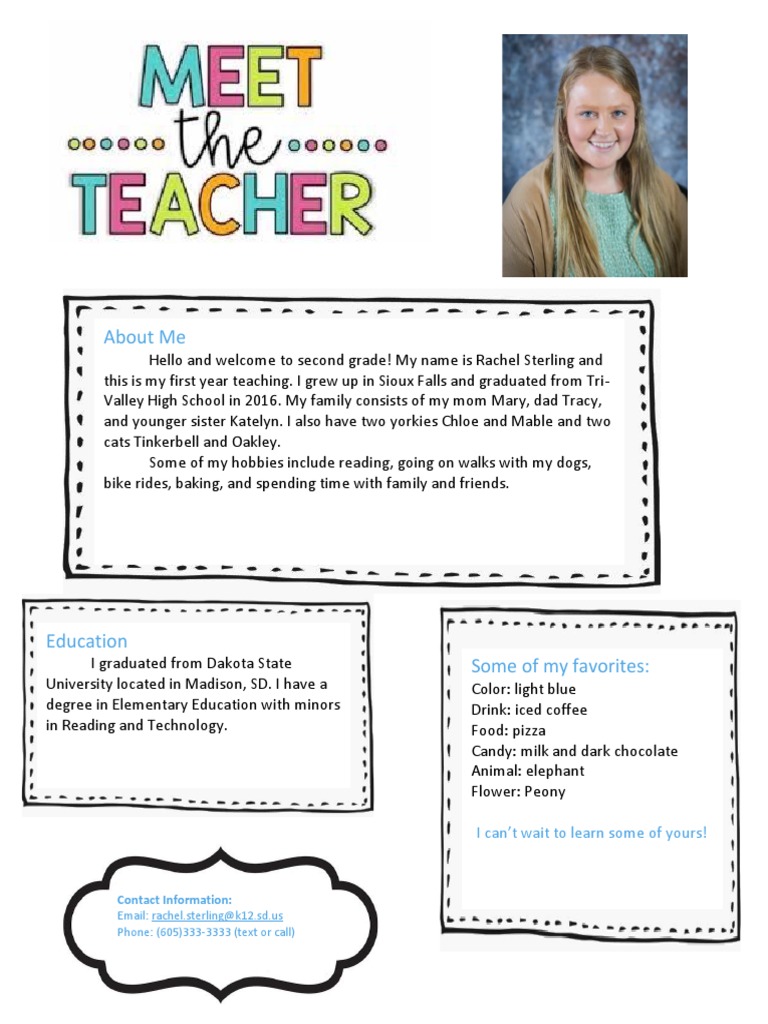 MEET
the
TEACHER
About Me
Hello and welcome to second grade! My name is Rachel Sterling and
this is my first year teaching. I grew up in Sioux Falls and graduated from Tri-
Valley High School in 2016. My family consists of my mom Mary, dad Tracy,
and younger sister Katelyn. I also have two yorkies Chloe and Mable and two
cats Tinkerbell and Oakley.
Some of my hobbies include reading, going on walks with my dogs,
bike rides, baking, and spending time with family and friends.
Education
I graduated from Dakota State
University located in Madison, SD. I have a
degree in Elementary Education with minors
in Reading and Technology.
Some of my favorites:
Color: light blue
Drink: iced coffee
Food: pizza
Candy: milk and dark chocolate
Animal: elephant
Flower: Peony
I can’t wait to learn some of yours!
Contact Information:
Email: rachel.sterling@k12.sd.us
Phone: (605)333-3333 (text or call)